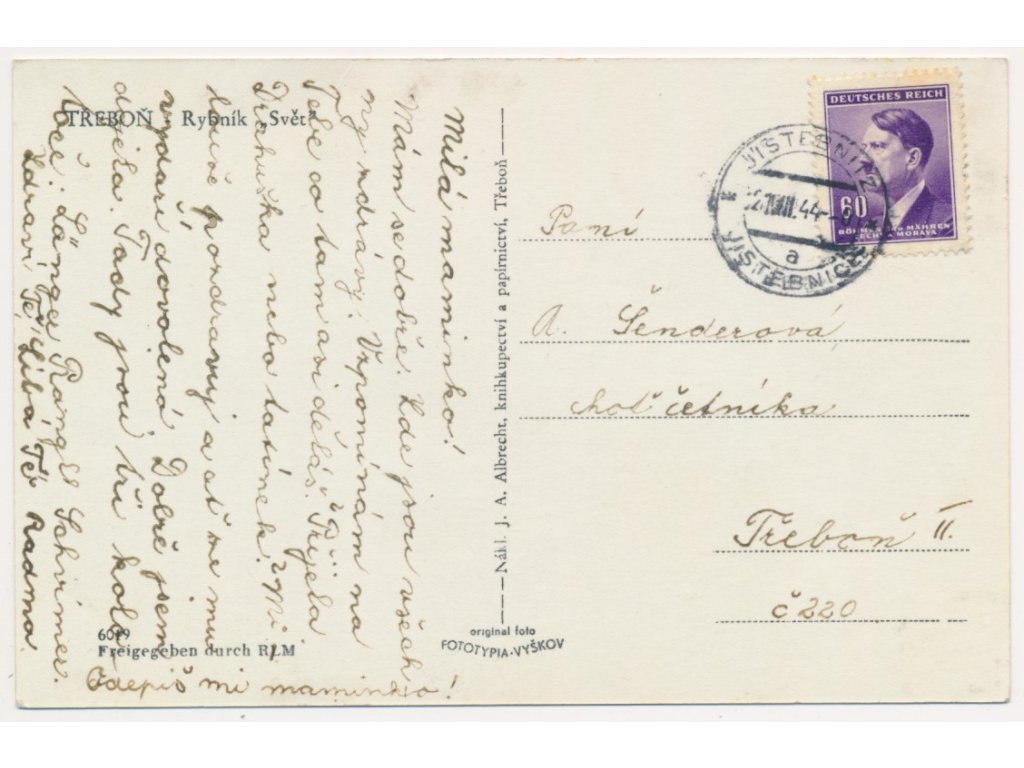 TŘEBOŇ - Rybník „Svět"
Milá maminko!
Mám se dobře. Zde jsou všech
ny zdrávy. Vzpomínám na
Tebe co tam asi děláš. Přijela
Drahuška nebo tatínek? Mi
luše pozdravuj a ať se mu
vydaří dovolená. Dobře jsem
dojela. Tady jsou tři kola
Zdraví Tě, líbá Tě Radma.
Odepiš mi maminko!
6019
Freigegeben durch RLM
Nákl. J. A. Albrecht, knihkupectví a papírnictví, Třeboň
original foto
FOTOTYPIA-VYŠKOV
DEUTSCHES REICH
60
BÖHMEN UND MÄHREN
ČECHY A MORAVA
JISTEBNITZ
44
a
JISTEBNICE
Paní
A. Šenderová,
choť četníka
Třeboň II.
č 220